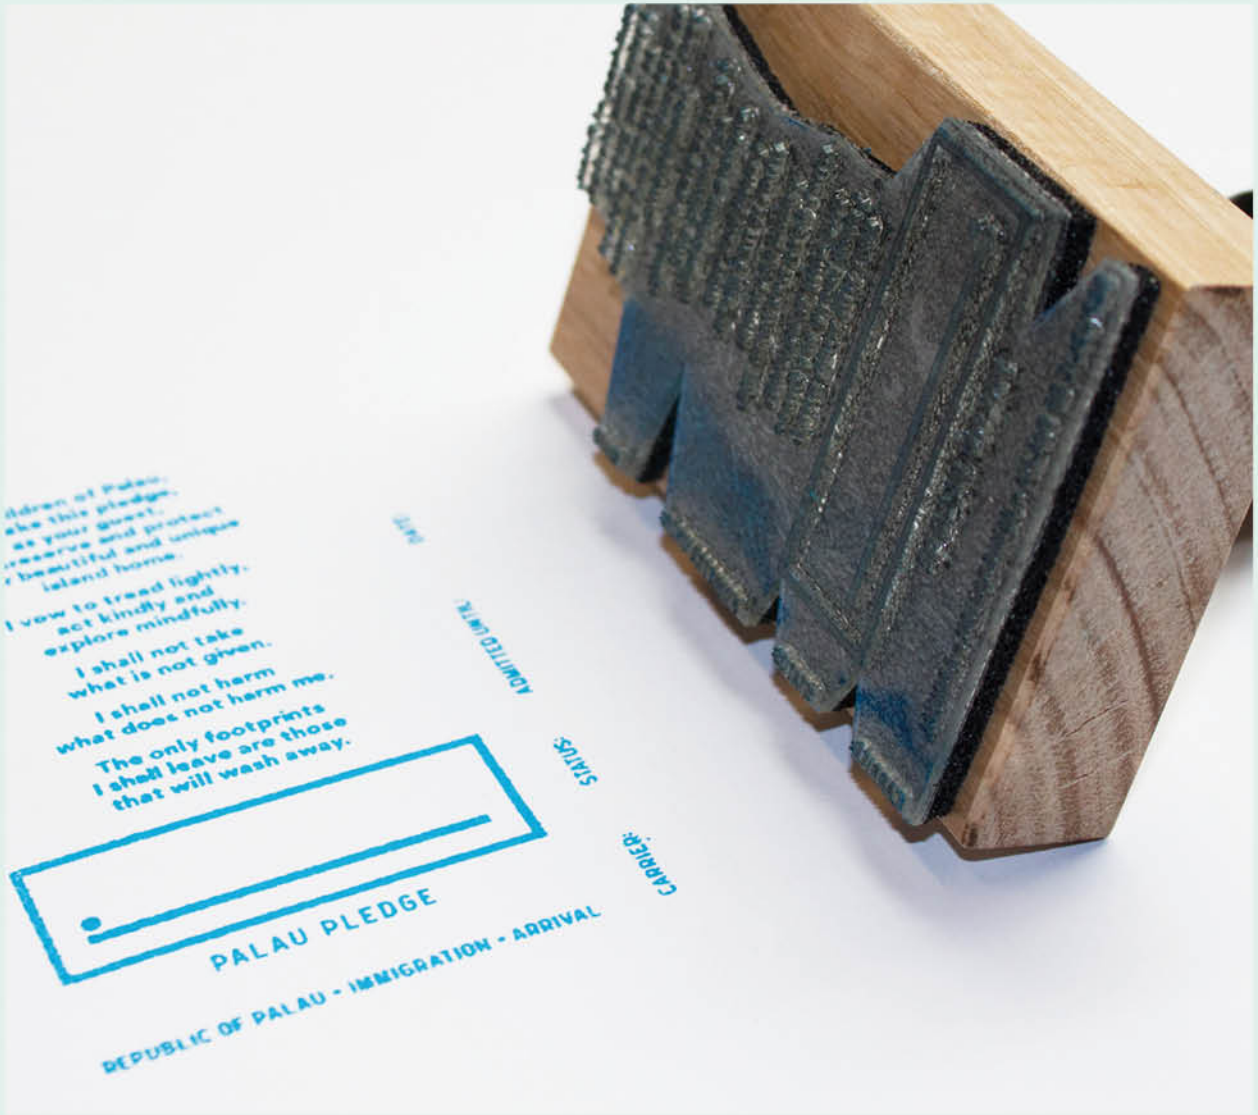 ldren of Palau,
ake this pledge,
as your guest,
reserve and protect
beautiful and unique
island home.
I vow to tread lightly,
act kindly and
explore mindfully.
I shall not take
what is not given.
I shall not harm
what does not harm me.
The only footprints
I shall leave are those
that will wash away.
DATE:
ADMITTED UNTIL:
STATUS:
CARRIER:
PALAU PLEDGE
REPUBLIC OF PALAU - IMMIGRATION - ARRIVAL